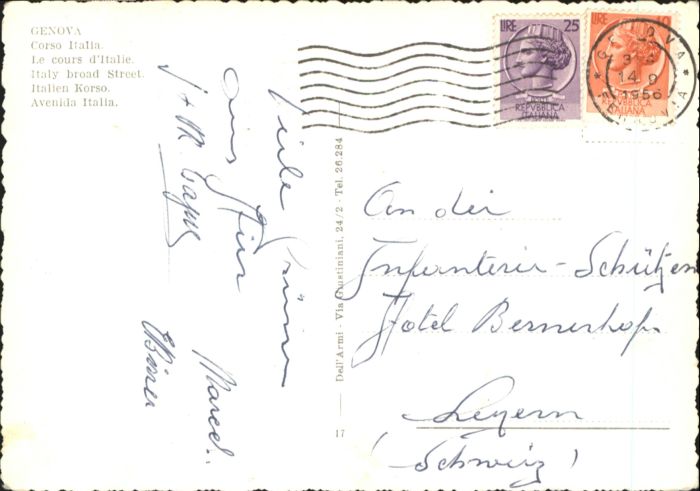 GENOVA
Corso Italia.
Le cours d'Italie.
Italy broad Street.
Italien Korso.
Avenida Italia.
LIRE 25
REPVBBLICA
ITALIANA
LIRE 10
REPVBBLICA
ITALIANA
GENOVA
14.9
1956
FERROVIA
Viele Grüsse
aus
J + M.
Marcel
Dell'Armi - Via Giustiniani, 24/2 - Tel. 26.284
17
An die
Infanterie-Schützen
Hotel Bernerhof
Luzern
(Schweiz)